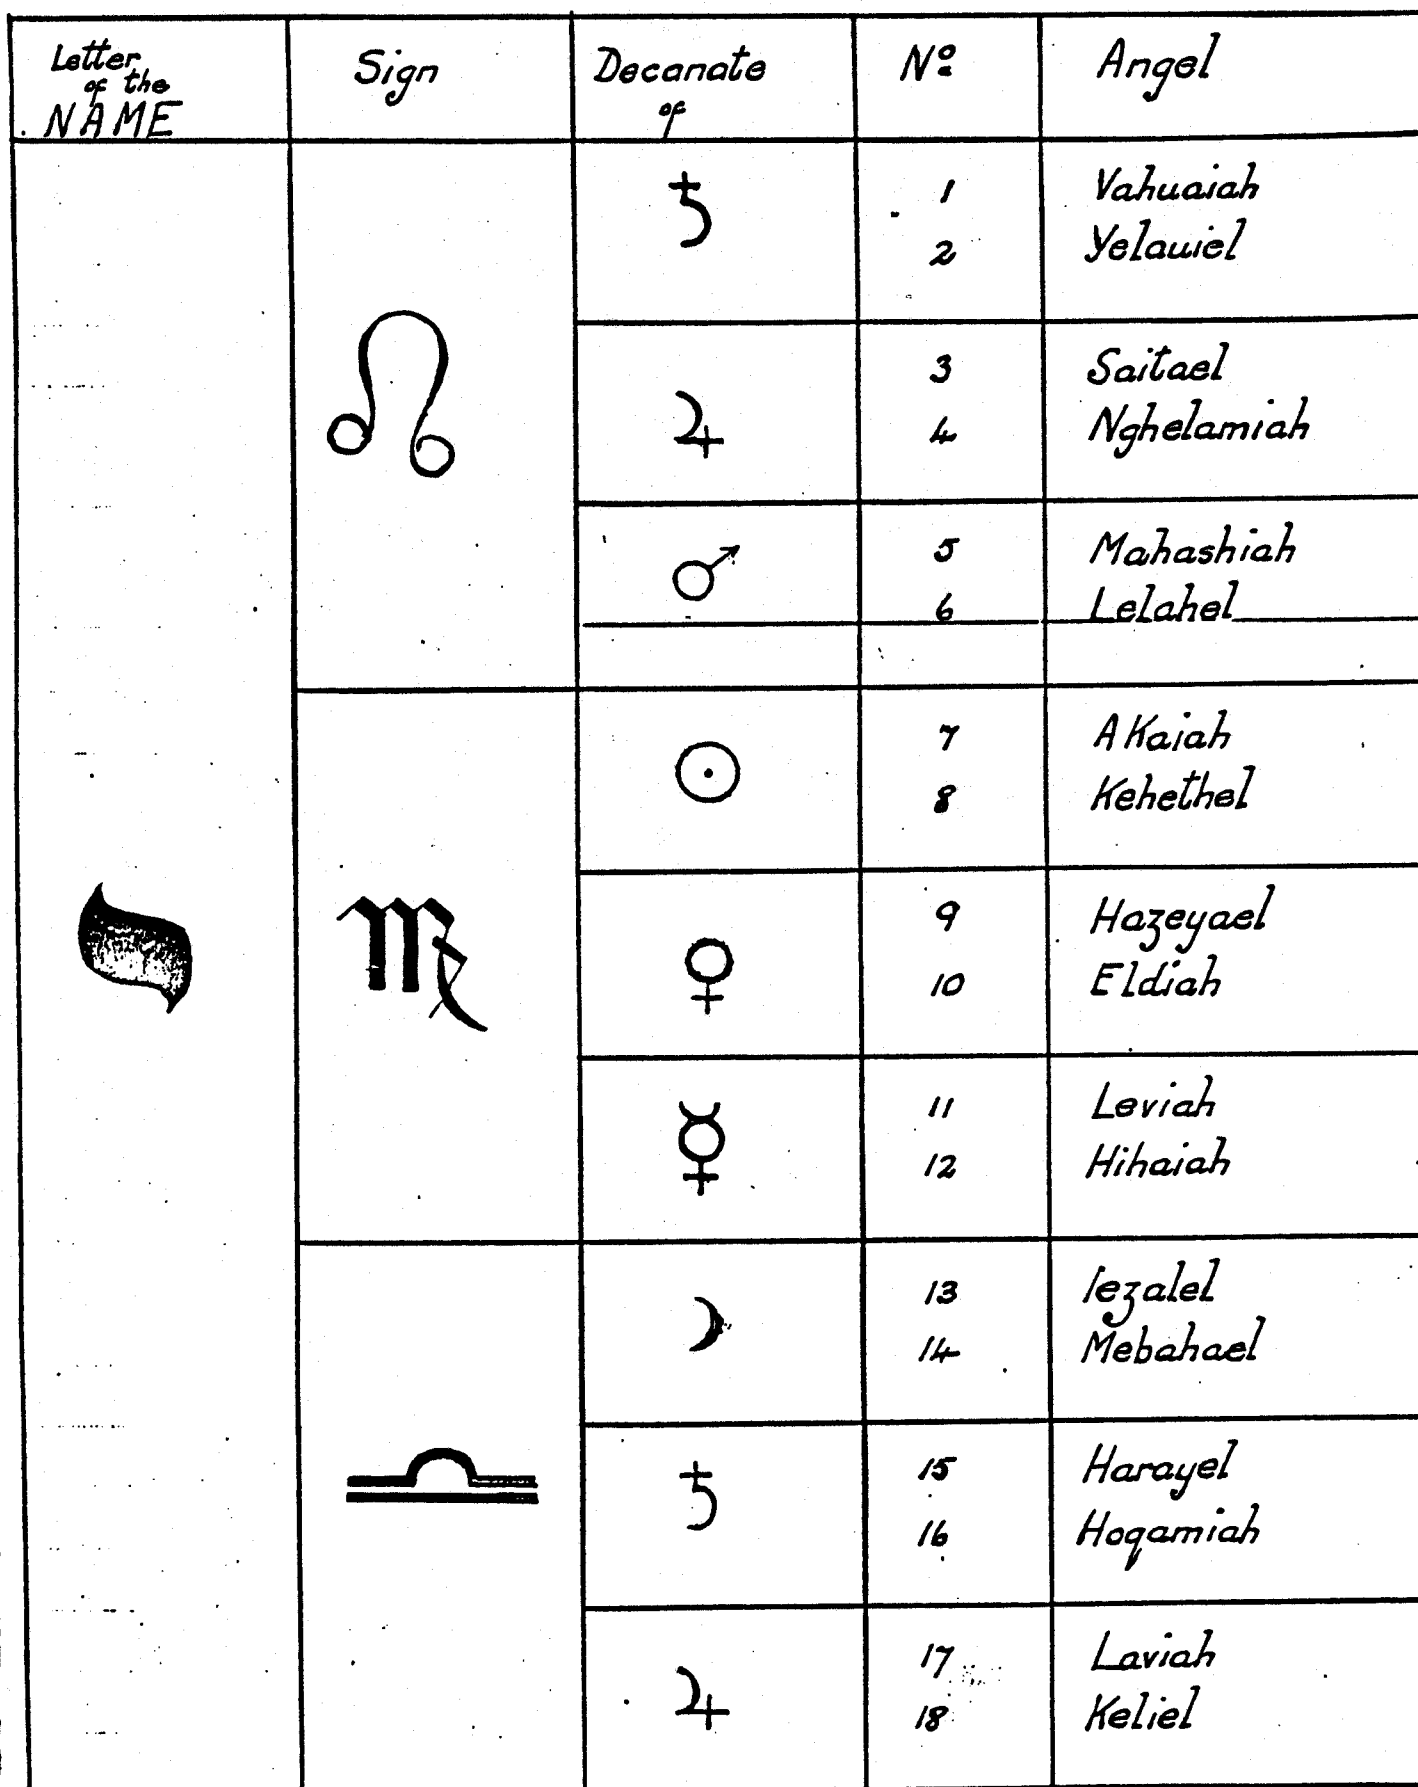 Letter of the NAME | Sign | Decanate of | Nº | Angel
י | ♌ | ♄ | 1 | Vahuaiah
2 | Yelauiel
♃ | 3 | Saitael
4 | Nghelamiah
♂ | 5 | Mahashiah
6 | Lelahel
♍ | ☉ | 7 | AKaiah
8 | Kehethel
♀ | 9 | Hazeyael
10 | Eldiah
☿ | 11 | Leviah
12 | Hihaiah
♎ | ☽ | 13 | Iezalel
14 | Mebahael
♄ | 15 | Harayel
16 | Hoqamiah
♃ | 17 | Laviah
18 | Keliel